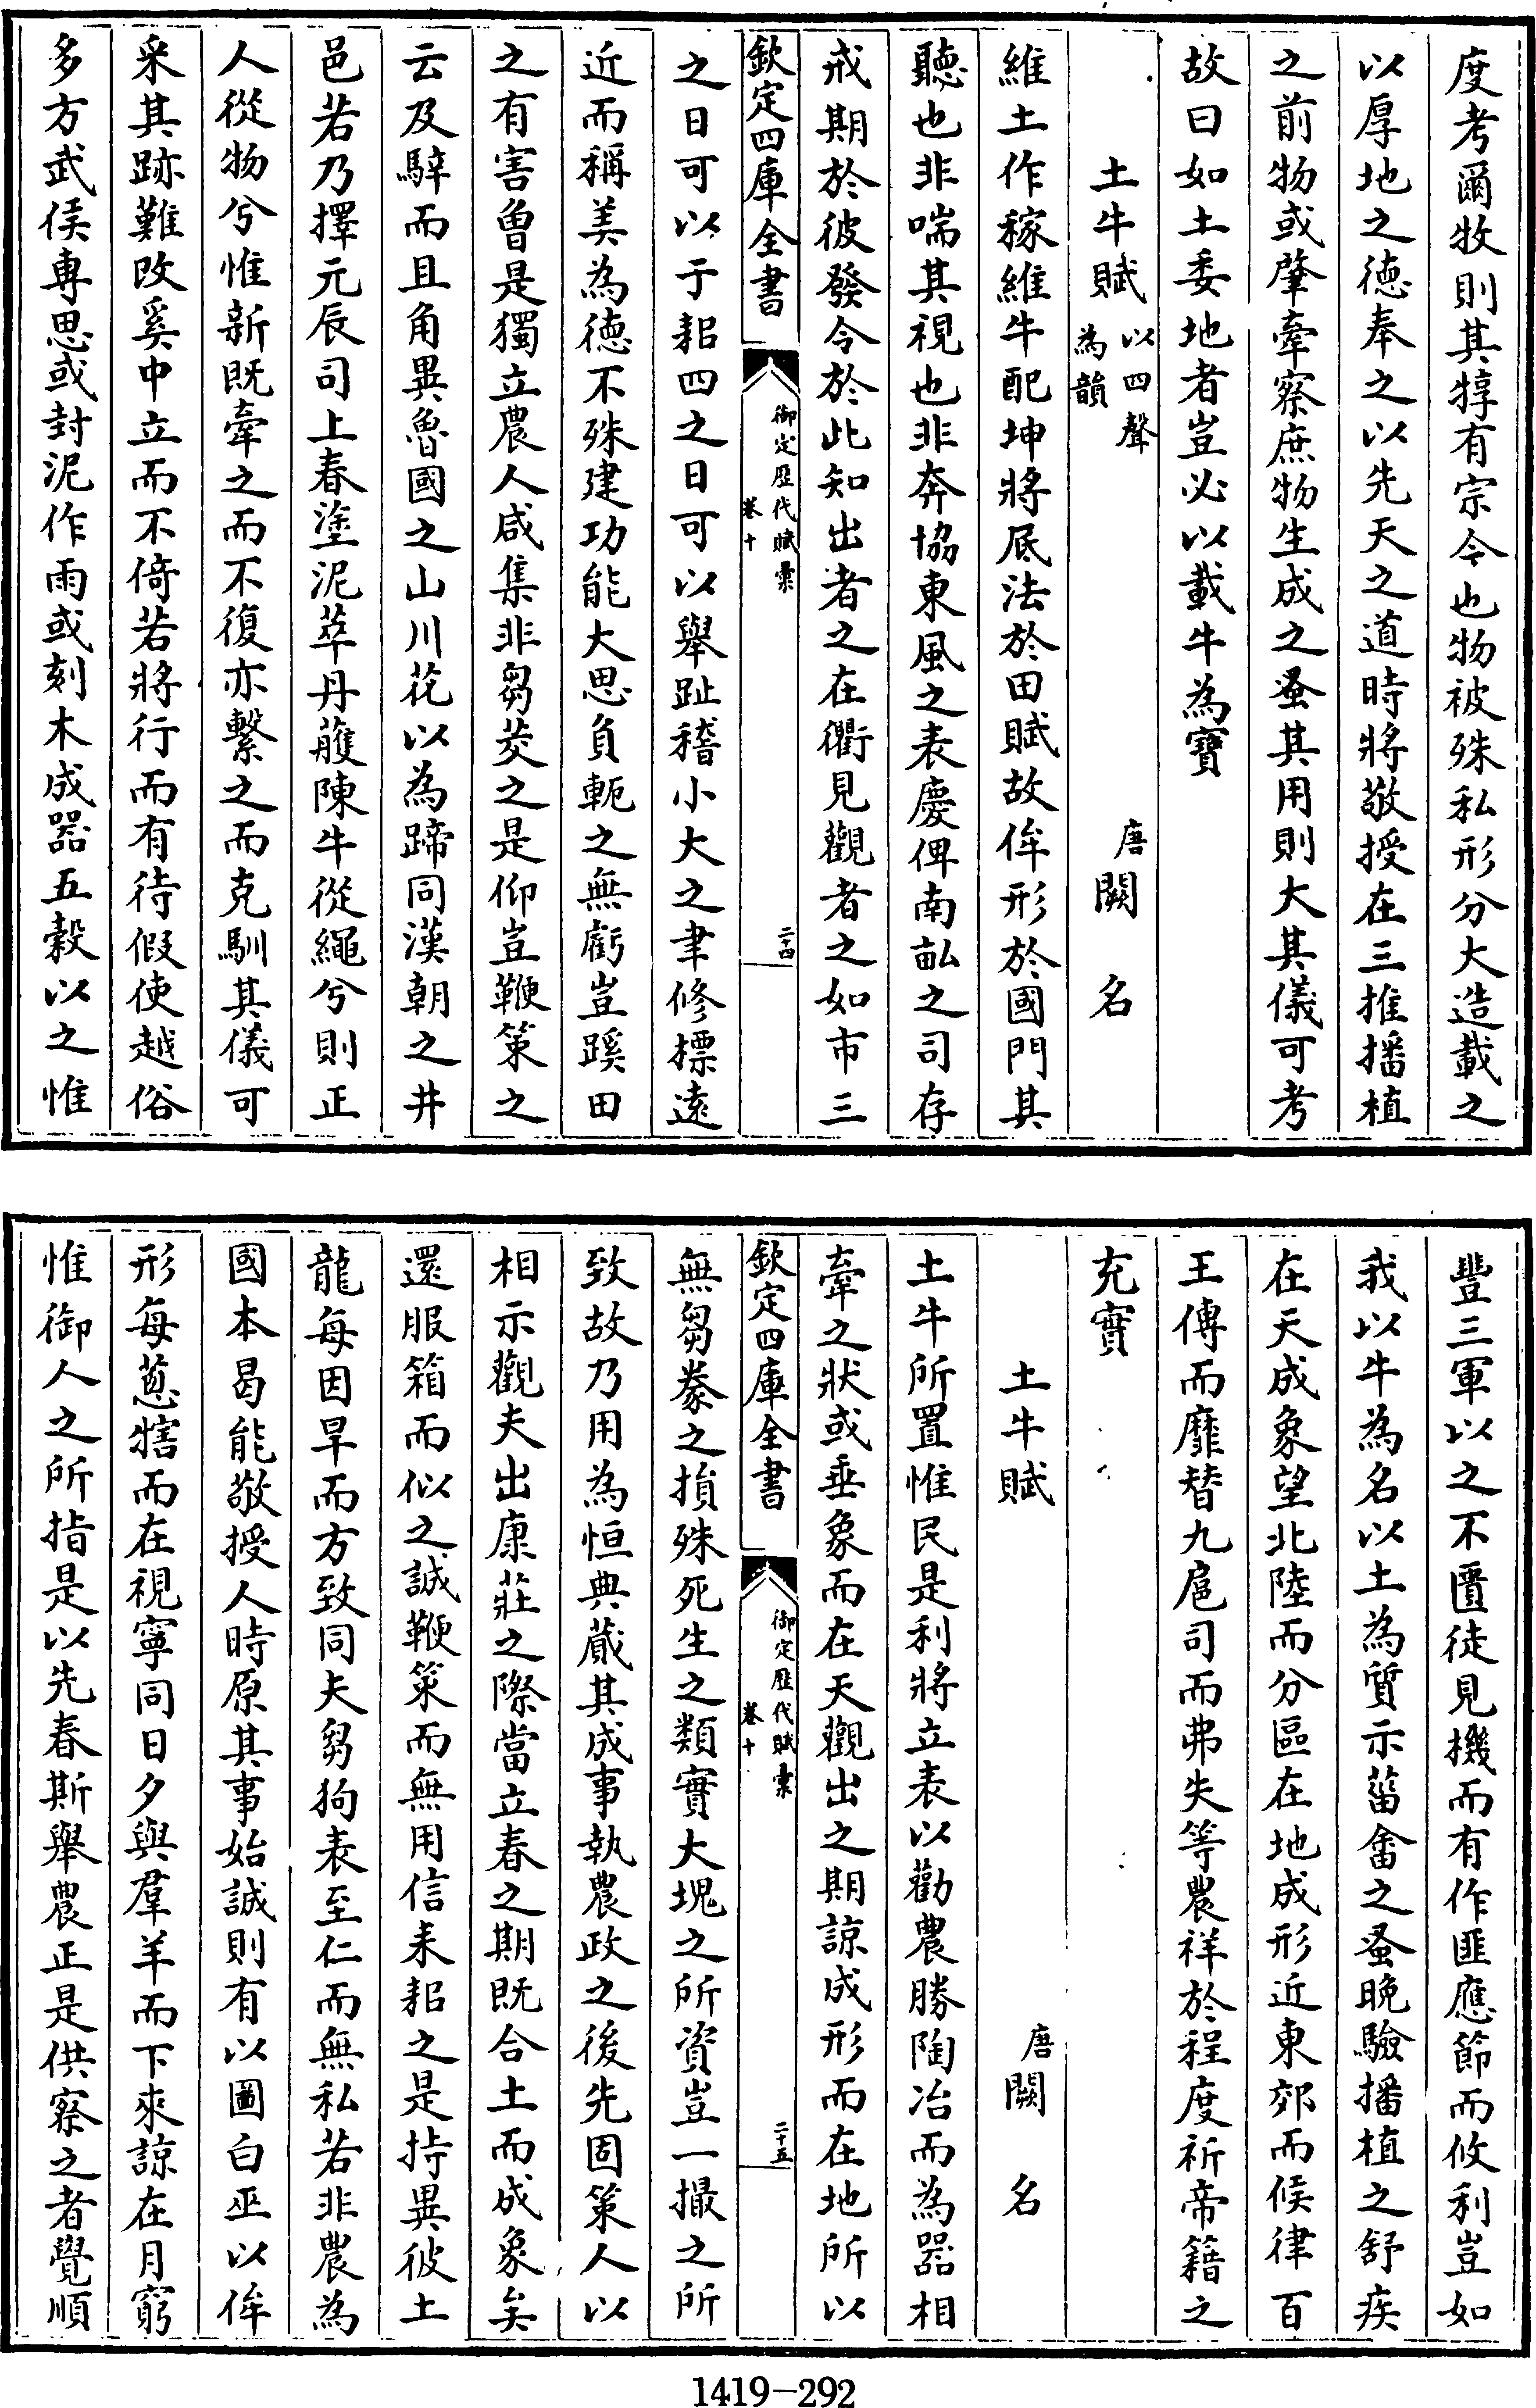 度考爾牧則其犉有宗今也物被殊私形分大造載之
以厚地之德奉之以先天之道時將敬授在三推播植
之前物或肇牽察庶物生成之蚤其用則大其儀可考
故曰如土委地者豈必以載牛為寶
土牛賦以四聲為韻 唐闕名
維土作稼維牛配坤將底法於田賦故侔形於國門其
聽也非喘其視也非奔協東風之表慶俾南畝之司存
戒期於彼發令於此知出者之在衢見觀者之如市三
欽定四庫全書 御定歷代賦彙 卷十 二十四
之日可以于耜四之日可以舉趾稽小大之聿修摽遠
近而稱美為德不殊建功能大思負軛之無虧豈蹊田
之有害曾是獨立農人咸集非芻茭之是仰豈鞭策之
云及騂而且角異魯國之山川花以為蹄同漢朝之井
邑若乃擇元辰司上春塗泥萃丹雘陳牛從繩兮則正
人從物兮惟新既牽之而不復亦繫之而克馴其儀可
采其跡難改奚中立而不倚若將行而有待假使越俗
多方武侯專思或封泥作雨或刻木成器五穀以之惟
豐三軍以之不匱徒見機而有作匪應節而攸利豈如
我以牛為名以土為質示菑畬之蚤晚驗播植之舒疾
在天成象望北陸而分區在地成形近東郊而候律百
王傳而靡替九扈司而弗失等農祥於程度祈帝籍之
充實
土牛賦 唐闕名
土牛所置惟民是利將立表以勸農勝陶冶而為器相
牽之狀或垂象而在天觀出之期諒成形而在地所以
欽定四庫全書 御定歷代賦彙 卷十 二十五
無芻豢之損殊死生之類實大塊之所資豈一撮之所
致故乃用為恒典蕆其成事執農政之後先固策人以
相示觀夫出康莊之際當立春之期既合土而成象矣
還服箱而似之誠鞭策而無用信耒耜之是持異彼土
龍每因旱而方致同夫芻狗表至仁而無私若非農為
國本曷能敬授人時原其事始誠則有以圖白巫以侔
形每蔥犗而在視寧同日夕與羣羊而下來諒在月窮
惟御人之所指是以先春斯舉農正是供察之者覺順